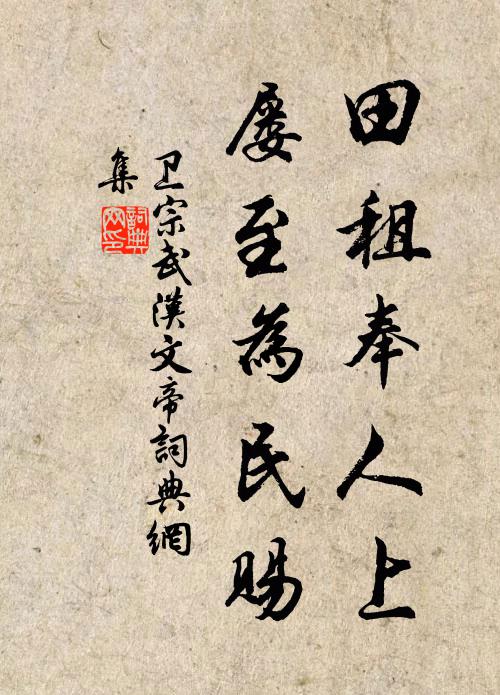 田租奉人上
屡至為民賜
卫宗武漢文帝詞典網
集
詞典網印